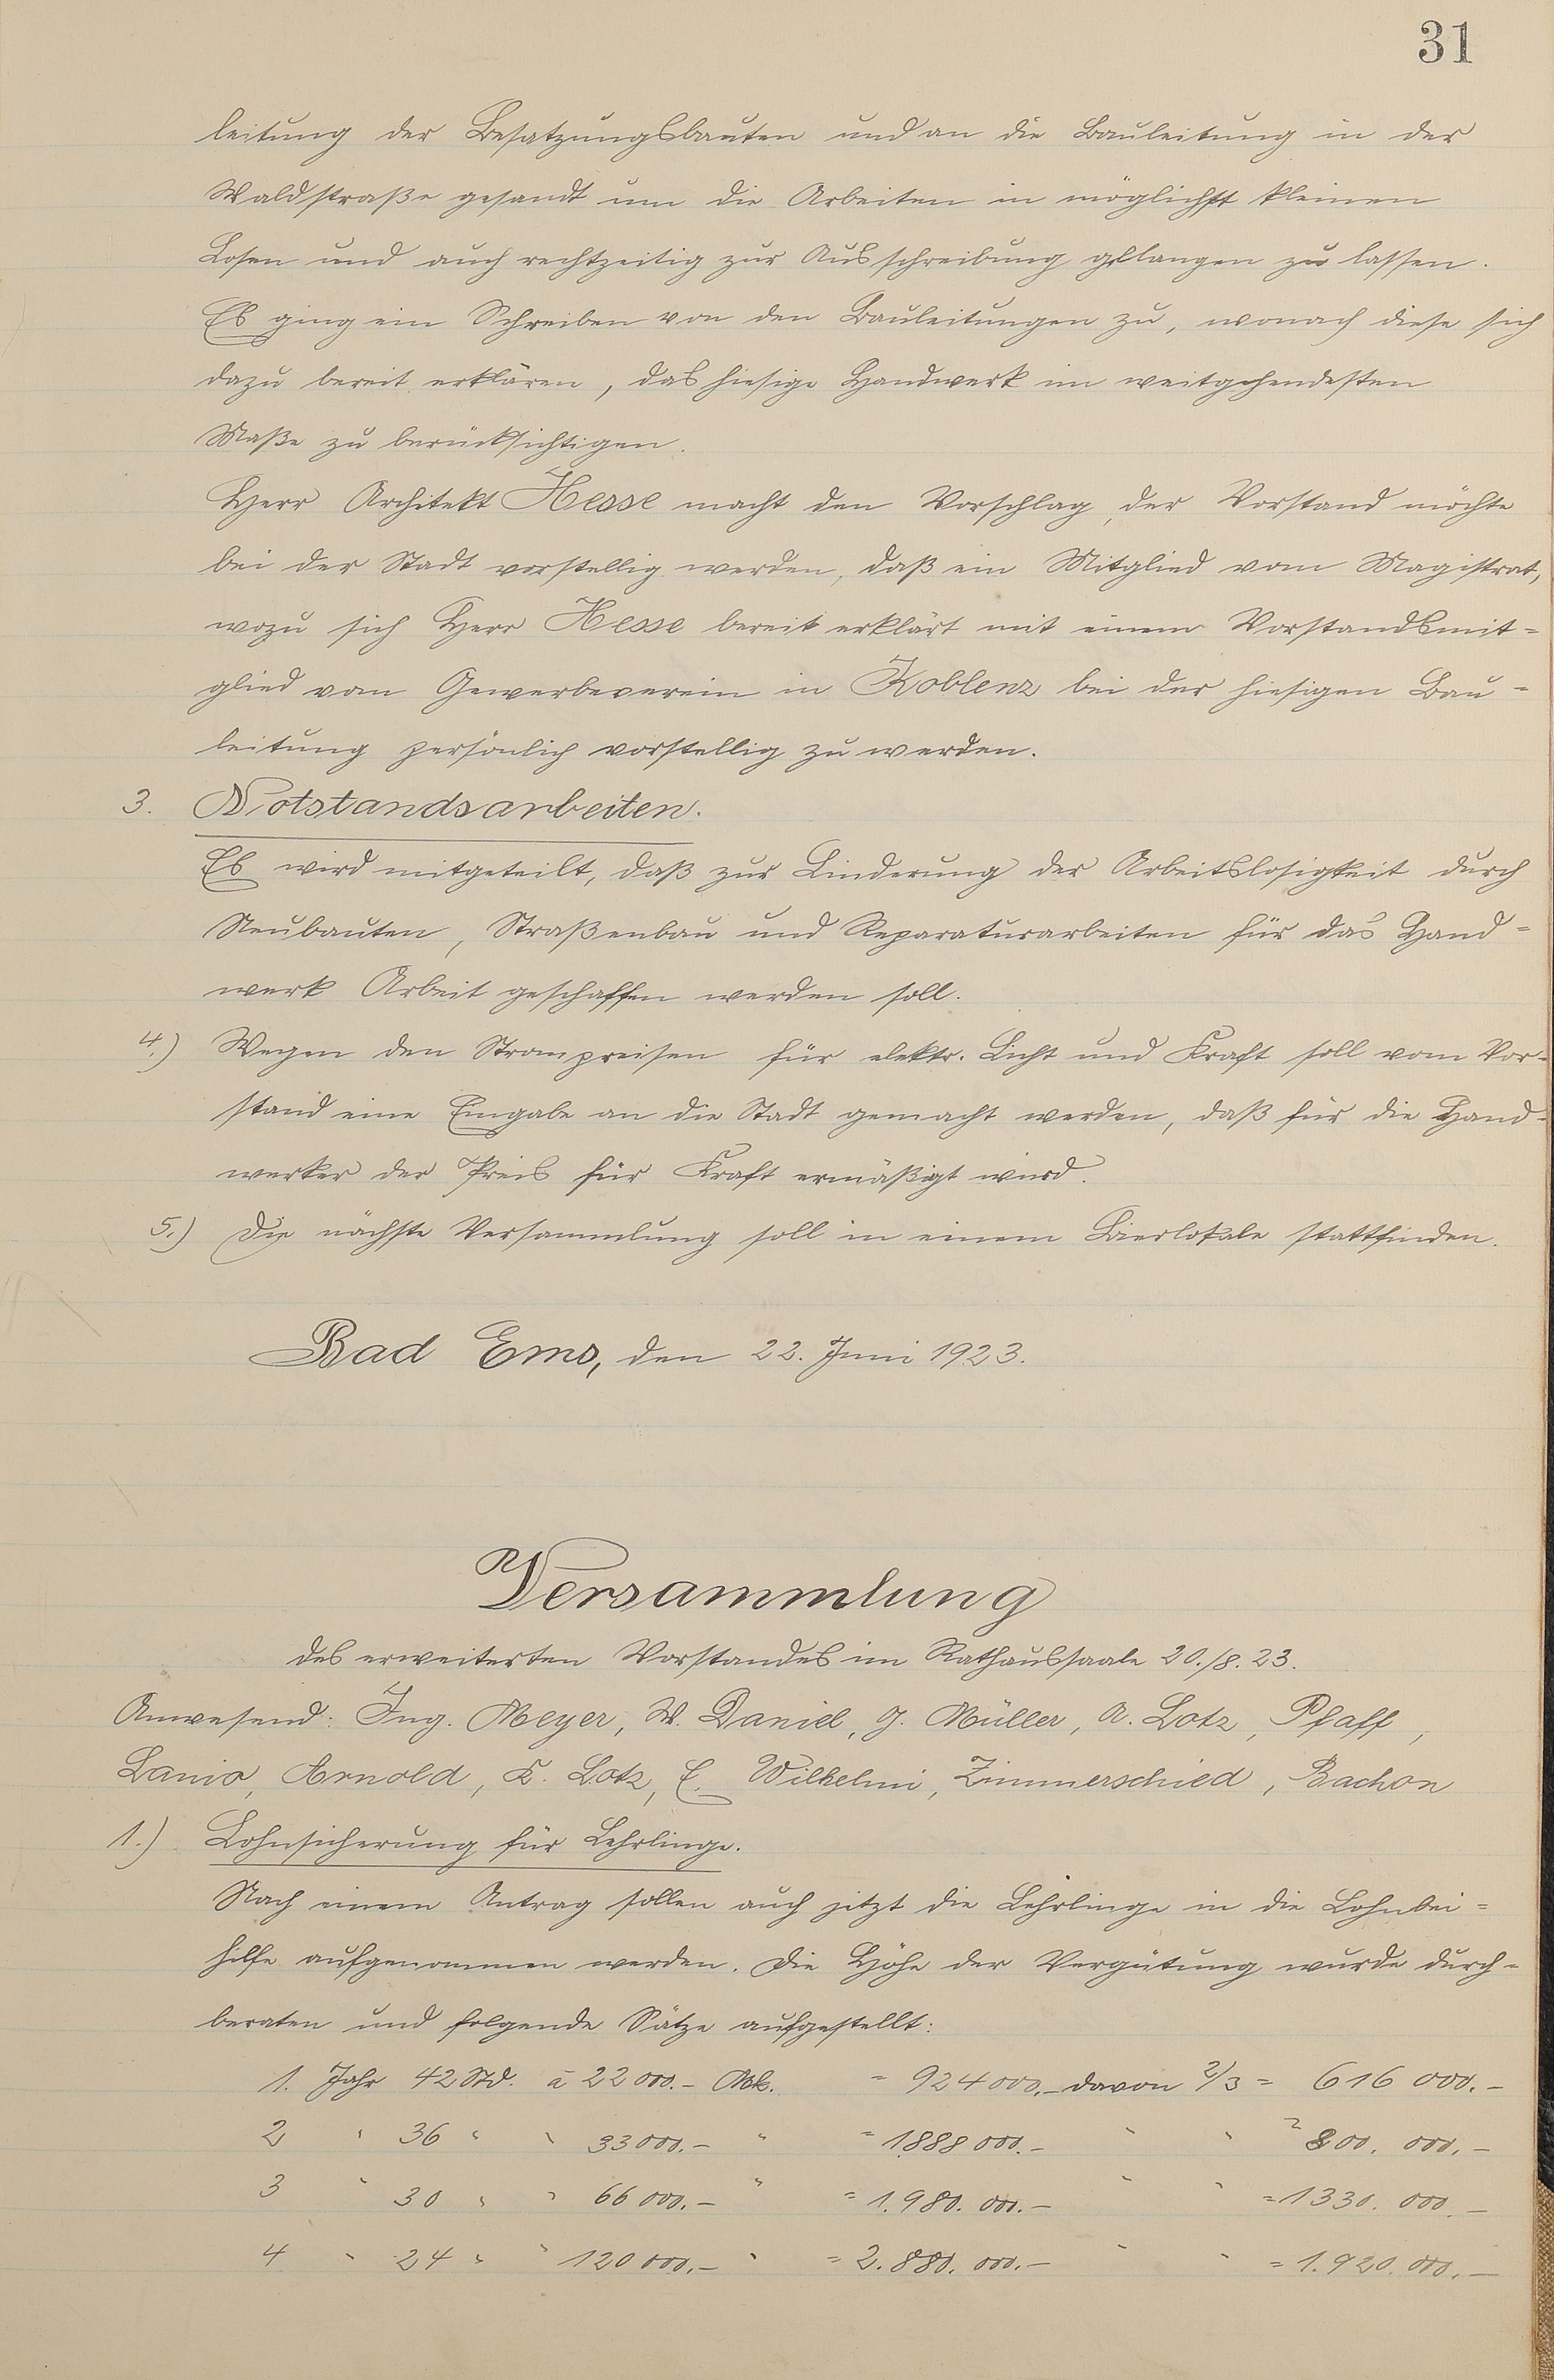 31
leitung der Besatzungsbauten und an die Bauleitung in der
Waldstraße gesandt um die Arbeiten in möglichst kleinen
Losen und auch rechtzeitig zur Ausschreibung gelangen zu lassen.
Es ging ein Schreiben von den Bauleitungen zu, wonach diese sich
dazu bereit erklären, das hiesige Handwerk im weitgehendesten
Maße zu berücksichtigen.
Herr Architekt Hesse macht den Vorschlag, der Vorstand möchte
bei der Stadt vorstellig werden, daß ein Mitglied vom Magistrat,
wozu sich Herr Hesse bereit erklärt mit einem Vorstandsmit=
glied vom Gewerbeverein in Koblenz bei der hiesigen Bau=
leitung persönlich vorstellig zu werden.
3. Notstandsarbeiten.
Es wird mitgeteilt, daß zur Linderung der Arbeitslosigkeit durch
Neubauten, Straßenbau und Reparaturarbeiten für das Hand=
werk Arbeit geschaffen werden soll.
4.) Wegen den Strompreisen für elektr. Licht und Kraft soll vom Vor=
stand eine Eingabe an die Stadt gemacht werden, daß für die Hand=
werker der Preis für Kraft ermäßigt wird.
5.) Die nächste Versammlung soll in einem Bierlokale stattfinden.
Bad Ems, den 22. Juni 1923.
Versammlung
des erweiterten Vorstandes im Rathaussaale 20./8. 23.
Anwesend: Ing. Meyer, W. Daniel, J. Müller, A. Lotz, Pfaff,
Lanio, Arnold, K. Lotz, E. Wilhelmi, Zimmerschied, Bachon
1.) Lohnsicherung für Lehrlinge.
Nach einem Antrag sollen auch jetzt die Lehrlinge in die Lohnbei=
hilfe aufgenommen werden. Die Höhe der Vergütung wurde durch=
beraten und folgende Sätze aufgestellt:
1. Jahr 42 Std. à 22 000.- Mk. = 924 000.- davon 2/3 = 616 000.-
2 " 36 " " 33 000.- " = 1.888 000.- " " = 800. 000.-
3 " 30 " " 66 000.- " = 1.980. 000.- " " = 1330. 000.-
4 " 24 " " 120 000.- " = 2.880. 000.- " " = 1.920. 000.-